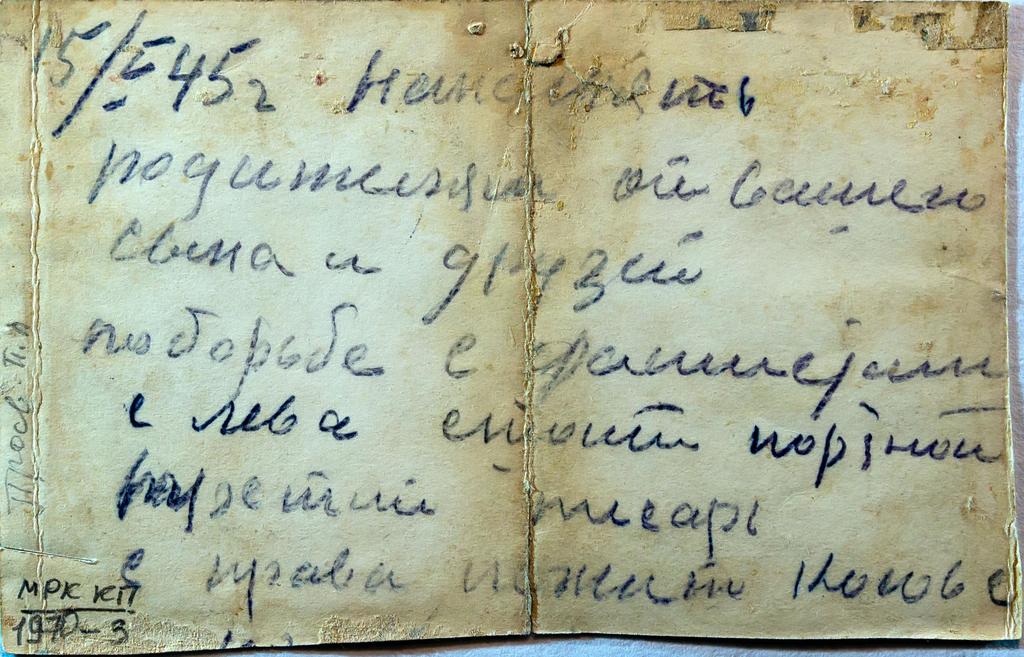 15/I-45г На память
родителям от вашего
сына и друзей
по борьбе с фашизмом
с лева стоит портной
писарь
с права лежит Коновс
Просв. П.А
МРК КП
1970-3